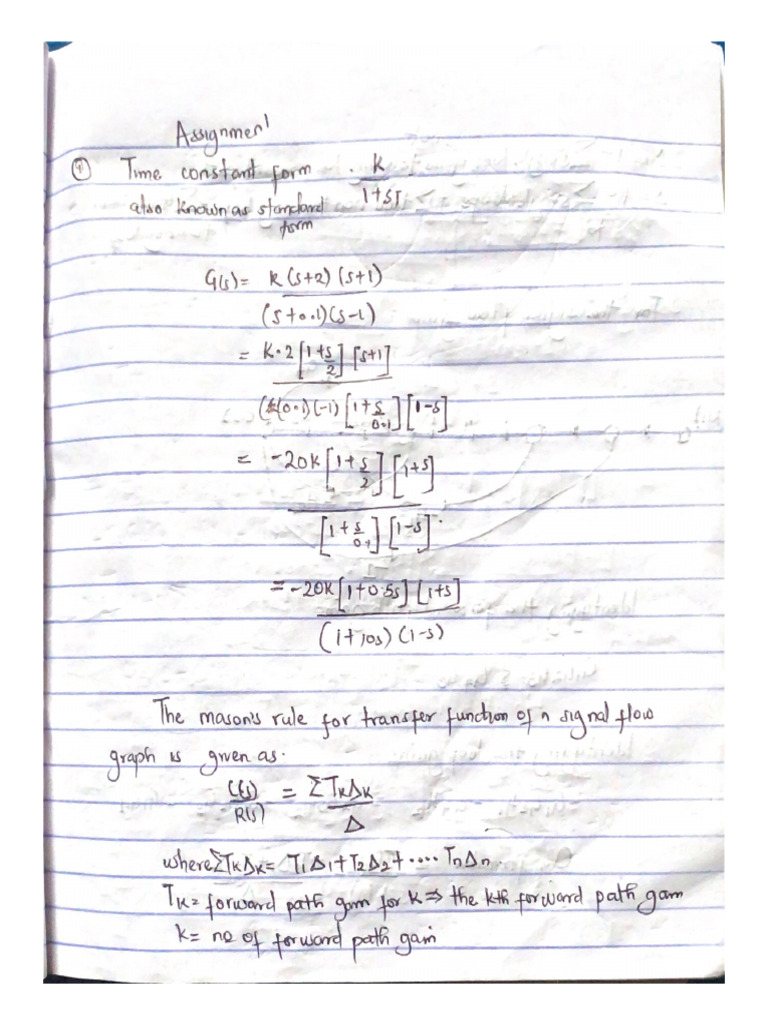 Assignment
① Time constant form K
also known as standard 1+ST
form
G(s)= K(s+2)(s+1)
(s+0.1)(s-1)
= K.2[1+s/2][s+1]
(0.1)(-1)[1+s/0.1][1-s]
= -20K[1+s/2][1+s]
[1+s/0.1][1-s]
= -20K[1+0.5s][1+s]
(1+10s)(1-s)
The mason's rule for transfer function of a signal flow
graph is given as.
C(s)/R(s) = ΣTKΔK
Δ
where ΣTKΔK= T1Δ1+T2Δ2+....TnΔn.
TK= forward path gain for K⇒ the kth forward path gain
K= no of forward path gain